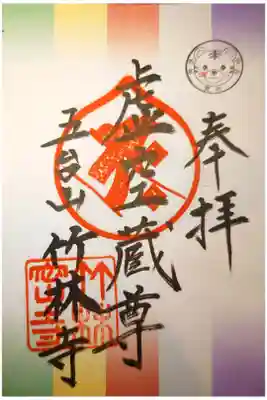 奉拝
虚空蔵尊
五台山 竹林寺